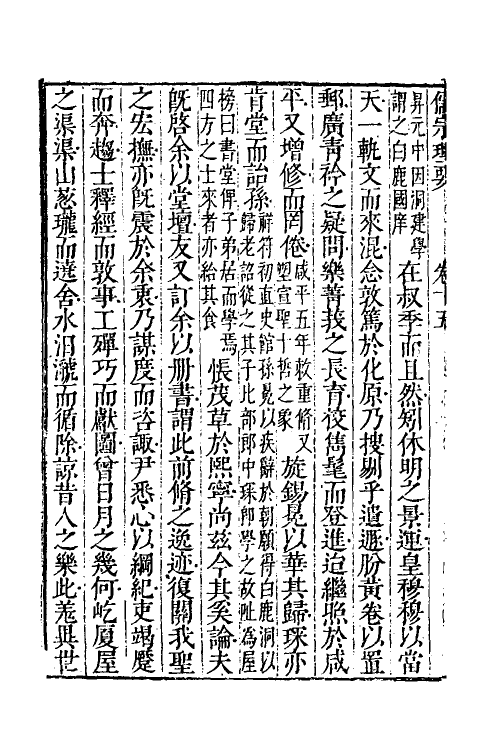 儒宗理要 卷十五
昇元中因洞建學謂之白鹿國庠 在叔季而且然矧休明之景運皇穆穆以當
天一軌文而來混念敦篤於化原乃搜剔乎遺遯肦黃卷以置
郵廣青衿之疑問樂菁莪之長育役雋髦而登進迨繼照於咸
平又增修而罔倦 咸平五年敕重脩又塑宣聖十哲之象 旋錫晃以華其歸琛亦
肯堂而詒孫 祥符初直史館孫晃以疾辭於朝願得白鹿洞以歸老詔從之其子比部郎中琛即學之故址為屋
榜曰書堂俾子弟居而學焉四方之士來者亦給其食 悵茂草於熙寧尚玆今其奚論夫
旣啓余以堂壇友又訂余以册書謂此前脩之逸迹復關我聖
之宏撫亦旣震於余衷乃謀度而咨諏尹悉心以綱紀吏竭蹷
而奔趨士釋經而敦事工殫巧而獻圖曾日月之幾何屹厦屋
之渠渠山葱瓏而遶舍水汩㶁而循除諒昔人之樂此羗異世